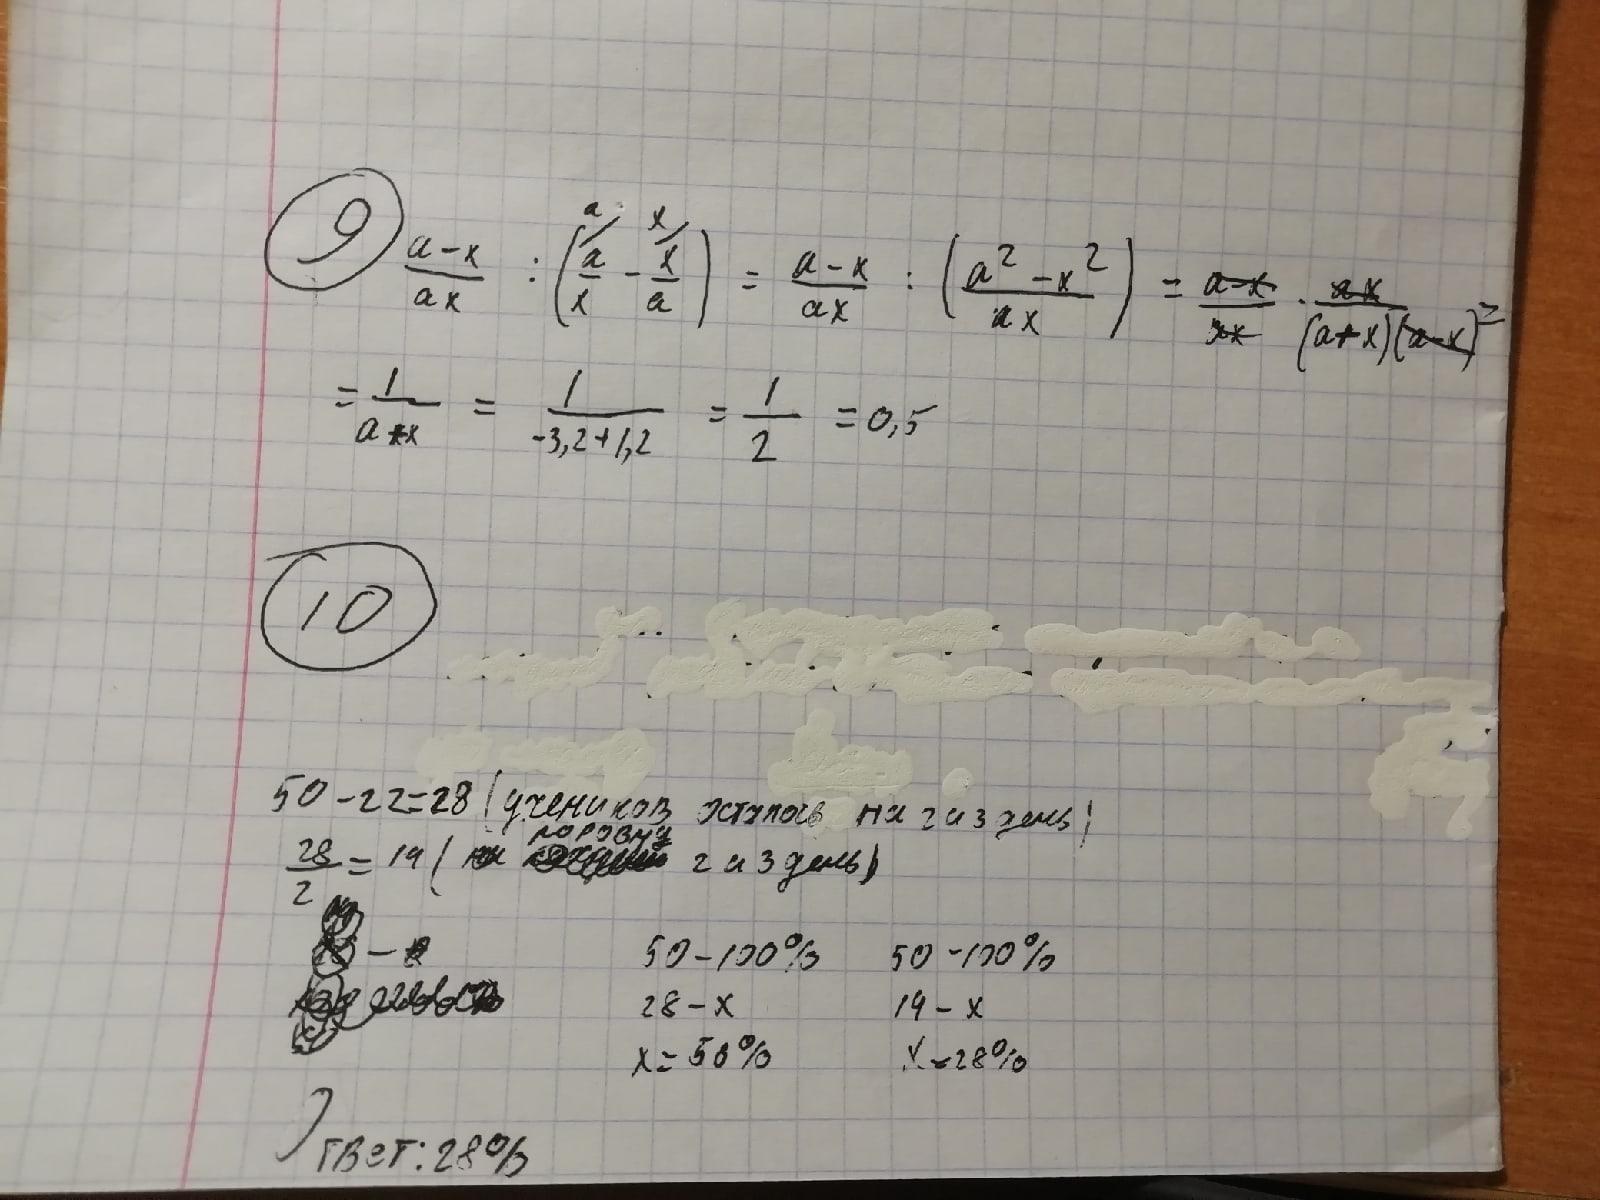 9
a-x/ax : (a/x - x/a) = a-x/ax : (a²-x²/ax) = a-x/ax · ax/(a+x)(a-x) =
= 1/a+x = 1/-3,2+1,2 = 1/2 = 0,5
10
50-22=28 (учеников осталось на 2 и 3 день)
28/2 = 14 ( поровну 2 и 3 день)
50-100% 50-100%
28-x 14-x
x=56% x=28%
Ответ: 28%